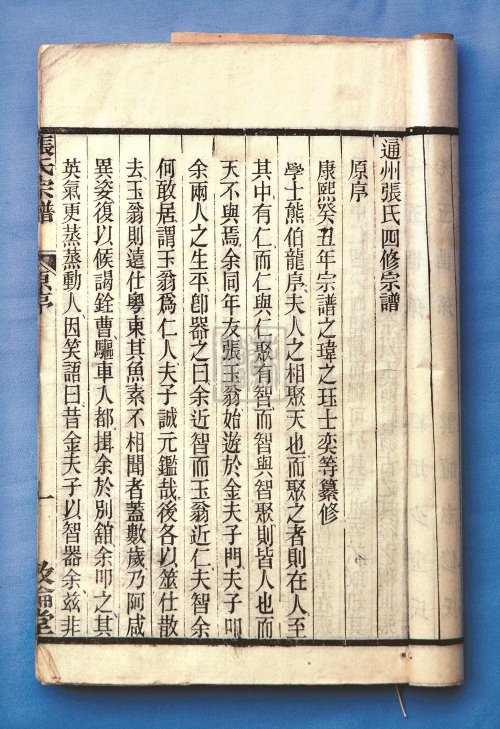 通州張氏四修宗譜
原序
康熙癸丑年宗譜之瑋之珏士奕等纂修
學士熊伯龍序夫人之相聚天也而聚之者則在人至
其中有仁而仁與仁聚有智而智與智聚則皆人也而
天不與焉余同年友張玉翁始遊於金夫子門夫子叩
余兩人之生平卽器之曰余近智而玉翁近仁夫智余
何敢居謂玉翁爲仁人夫子誠元鑑哉後各以筮仕散
去玉翁則遠仕粵東其魚素不相聞者蓋數歲乃阿咸
異姿復以候謁銓曹驅車入都揖余於別舘余叩之其
英氣更蒸蒸動人因笑語曰昔金夫子以智器余茲非
張氏宗譜
原序
一
敦倫堂